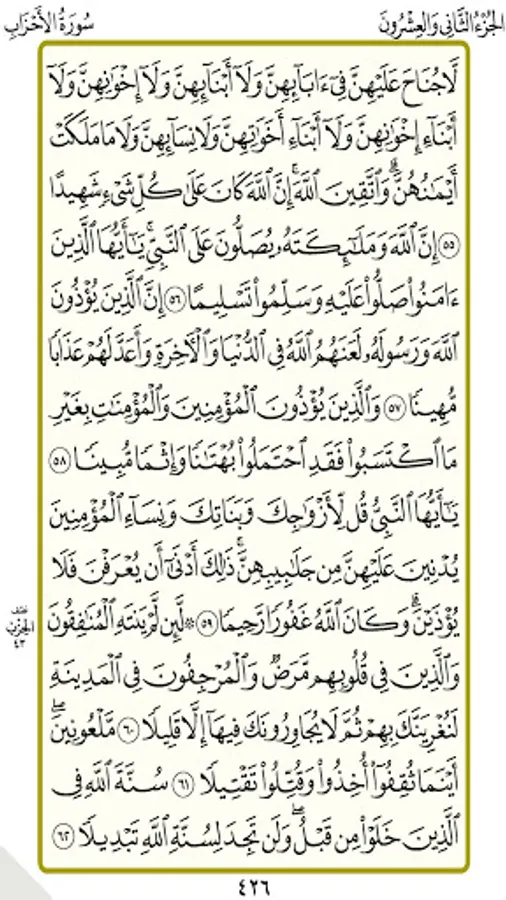 الجُزْءُ الثَّانِي وَالعِشْرُونَ
سُورَةُ الأَحْزَابِ
لَّا جُنَاحَ عَلَيْهِنَّ فِيٓ ءَابَآئِهِنَّ وَلَآ أَبْنَآئِهِنَّ وَلَآ إِخْوَٰنِهِنَّ وَلَآ
أَبْنَآءِ إِخْوَٰنِهِنَّ وَلَآ أَبْنَآءِ أَخَوَٰتِهِنَّ وَلَا نِسَآئِهِنَّ وَلَا مَا مَلَكَتْ
أَيْمَٰنُهُنَّۗ وَٱتَّقِينَ ٱللَّهَۚ إِنَّ ٱللَّهَ كَانَ عَلَىٰ كُلِّ شَيْءٍ شَهِيدًا
٥٥ إِنَّ ٱللَّهَ وَمَلَٰٓئِكَتَهُۥ يُصَلُّونَ عَلَى ٱلنَّبِيِّۚ يَٰٓأَيُّهَا ٱلَّذِينَ
ءَامَنُوا۟ صَلُّوا۟ عَلَيْهِ وَسَلِّمُوا۟ تَسْلِيمًا ٥٦ إِنَّ ٱلَّذِينَ يُؤْذُونَ
ٱللَّهَ وَرَسُولَهُۥ لَعَنَهُمُ ٱللَّهُ فِي ٱلدُّنْيَا وَٱلْءَاخِرَةِ وَأَعَدَّ لَهُمْ عَذَابًا
مُّهِينًا ٥٧ وَٱلَّذِينَ يُؤْذُونَ ٱلْمُؤْمِنِينَ وَٱلْمُؤْمِنَٰتِ بِغَيْرِ
مَا ٱكْتَسَبُوا۟ فَقَدِ ٱحْتَمَلُوا۟ بُهْتَٰنًا وَإِثْمًا مُّبِينًا ٥٨
يَٰٓأَيُّهَا ٱلنَّبِيُّ قُل لِّأَزْوَٰجِكَ وَبَنَاتِكَ وَنِسَآءِ ٱلْمُؤْمِنِينَ
يُدْنِينَ عَلَيْهِنَّ مِن جَلَٰبِيبِهِنَّۚ ذَٰلِكَ أَدْنَىٰٓ أَن يُعْرَفْنَ فَلَا
يُؤْذَيْنَۗ وَكَانَ ٱللَّهُ غَفُورًا رَّحِيمًا ٥٩ ۞ لَّئِن لَّمْ يَنتَهِ ٱلْمُنَٰفِقُونَ
نصف
الحزب
٤٣
وَٱلَّذِينَ فِي قُلُوبِهِم مَّرَضٌ وَٱلْمُرْجِفُونَ فِي ٱلْمَدِينَةِ
لَنُغْرِيَنَّكَ بِهِمْ ثُمَّ لَا يُجَاوِرُونَكَ فِيهَآ إِلَّا قَلِيلًا ٦٠ مَّلْعُونِينَۖ
أَيْنَمَا ثُقِفُوٓا۟ أُخِذُوا۟ وَقُتِّلُوا۟ تَقْتِيلًا ٦١ سُنَّةَ ٱللَّهِ فِي
ٱلَّذِينَ خَلَوْا۟ مِن قَبْلُۖ وَلَن تَجِدَ لِسُنَّةِ ٱللَّهِ تَبْدِيلًا ٦٢
٤٢٦